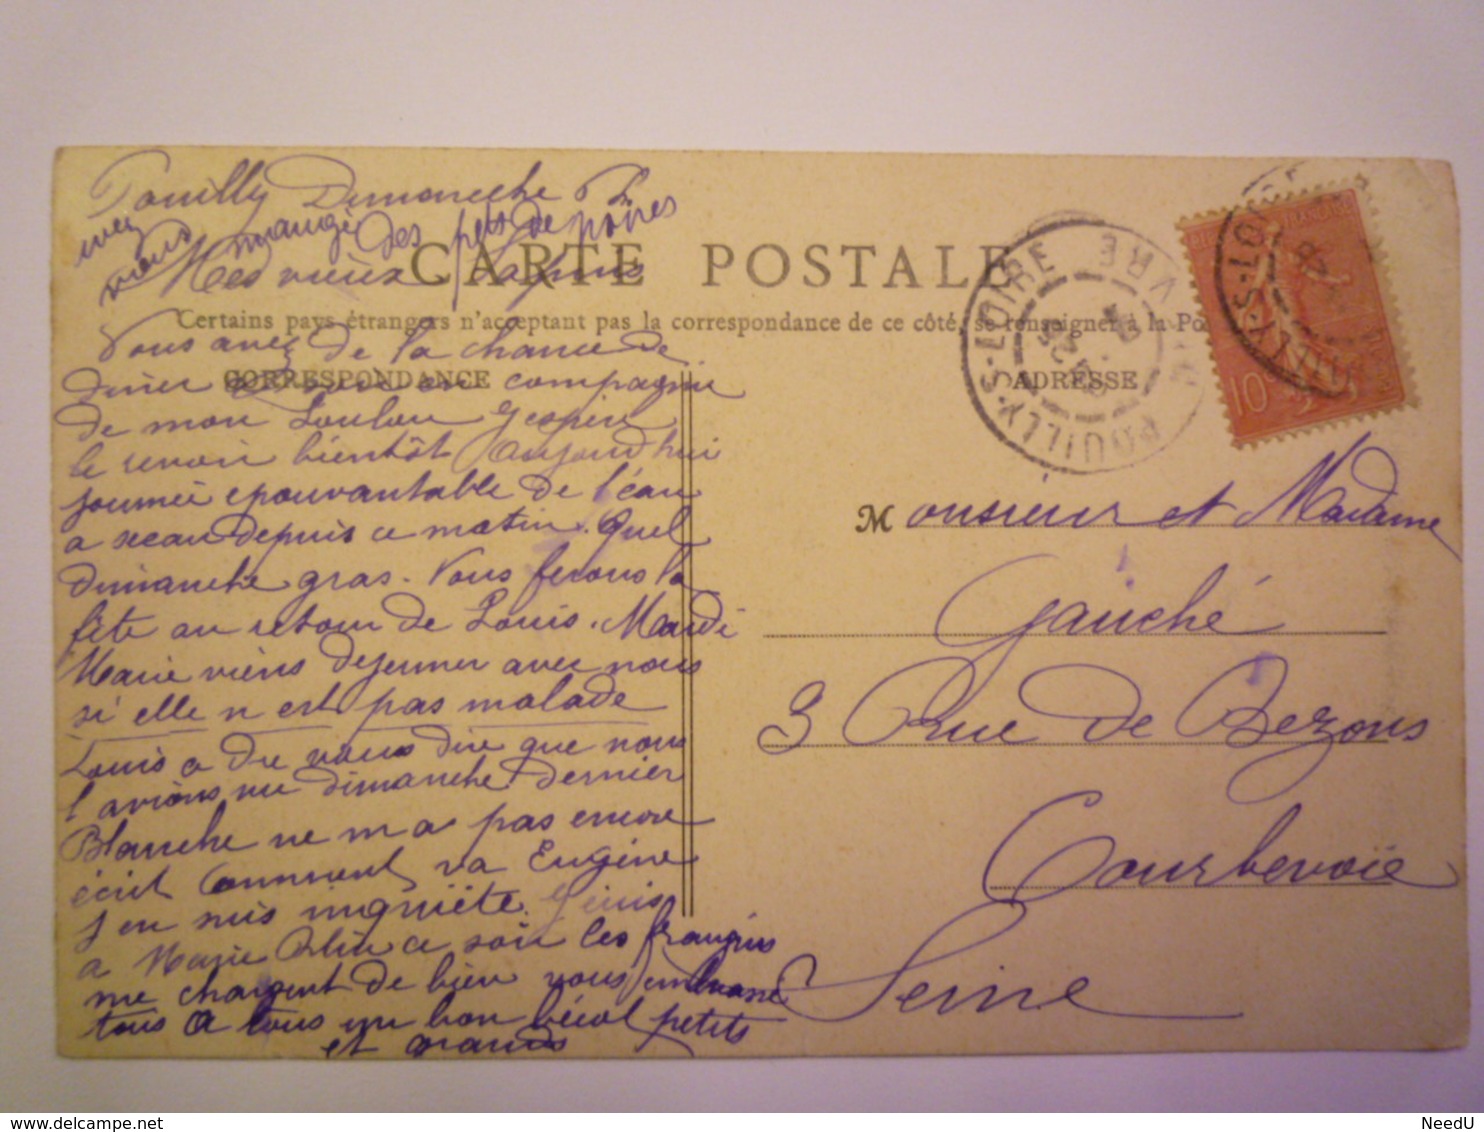 Pouilly Dimanche
avez vous mangé des pets de poires
CARTE POSTALE
Mes vieux Lapins
Certains pays étrangers n'acceptent pas la correspondance de ce côté, se renseigner à la Po
CORRESPONDANCE
ADRESSE
Vous avez de la chance de
diner en compagnie
de mon Loulou J'espère
le revoir bientôt Aujourd'hui
journée epouvantable de l'eau
a seau depuis ce matin. Quel
dimanche gras. Nous ferons la
fête au retour de Louis. Mardi
Marie viens dejeuner avec nous
si elle n est pas malade
Louis a du vous dire que nous
l'avions vu dimanche dernier
Blanche ne m a pas encore
écrit Comment va Eugène
j en suis inquiète. J'écris
a Marie ce soir les frangins
me chargent de bien vous embrasser
tous a tous un bon bécot petits
et grands
POUILLY-S-LOIRE
NIEVRE
POUILLY-S-LOIRE
10
Monsieur et Madame
Gauché
3 Rue de Bezons
Courbevoie
Seine
NeedU